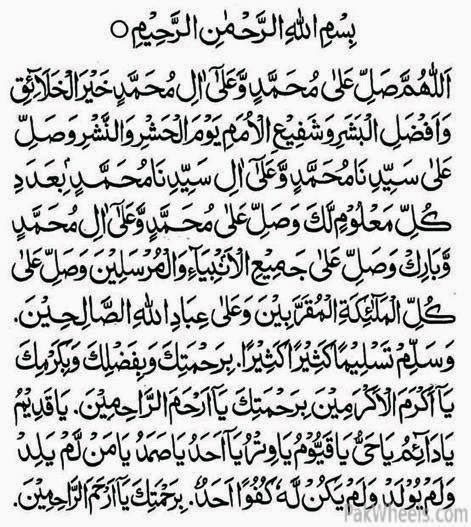 بِسْمِ اللهِ الرَّحْمٰنِ الرَّحِيْمِ ○
اَللّٰهُمَّ صَلِّ عَلىٰ مُحَمَّدٍ وَّعَلىٰٓ اٰلِ مُحَمَّدٍ خَيْرِ الْخَلَائِقِ
وَاَفْضَلِ الْبَشَرِ وَشَفِيْعِ الْاُمَمِ يَوْمَ الْحَشْرِ وَالنَّشْرِ وَصَلِّ
عَلىٰ سَيِّدِنَا مُحَمَّدٍ وَّعَلىٰٓ اٰلِ سَيِّدِنَا مُحَمَّدٍ بِعَدَدِ
كُلِّ مَعْلُوْمٍ لَّكَ وَصَلِّ عَلىٰ مُحَمَّدٍ وَّعَلىٰٓ اٰلِ مُحَمَّدٍ
وَّبَارِكْ وَصَلِّ عَلىٰ جَمِيْعِ الْاَنْبِيَآءِ وَالْمُرْسَلِيْنَ وَصَلِّ عَلىٰ
كُلِّ الْمَلَائِكَةِ الْمُقَرَّبِيْنَ وَعَلىٰ عِبَادِ اللهِ الصَّالِحِيْنَ.
وَسَلِّمْ تَسْلِيْمًا كَثِيْرًا كَثِيْرًا. بِرَحْمَتِكَ وَبِفَضْلِكَ وَبِكَرَمِكَ
يَآ اَكْرَمَ الْاَكْرَمِيْنَ بِرَحْمَتِكَ يَآ اَرْحَمَ الرَّاحِمِيْنَ. يَا قَدِيْمُ
يَا دَآئِمُ يَا حَىُّ يَا قَيُّوْمُ يَا وِتْرُ يَآ اَحَدُ يَا صَمَدُ يَا مَنْ لَّمْ يَلِدْ
وَلَمْ يُوْلَدْ وَلَمْ يَكُنْ لَّهٗ كُفُوًا اَحَدٌ. بِرَحْمَتِكَ يَآ اَرْحَمَ الرَّاحِمِيْنَ.
PakWheels.com